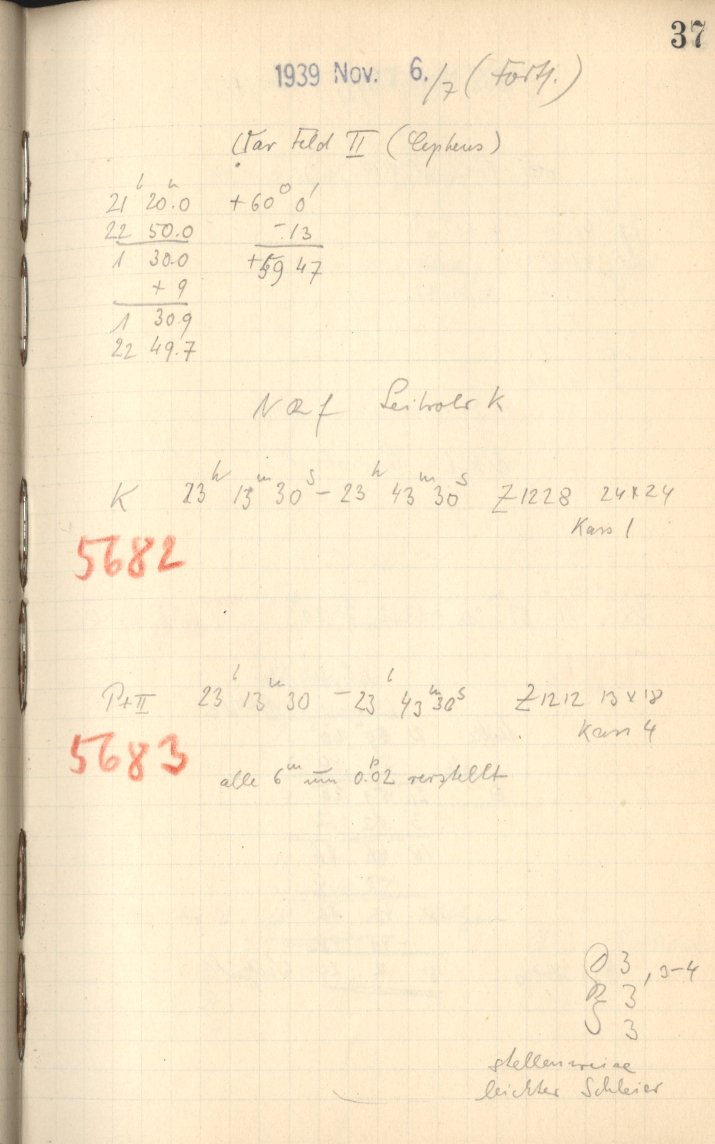 37
1939 Nov. 6./7 (Forts.)
Var Feld II (Cepheus)
21 h 20.0 m +60° 0'
22 50.0 -13
1 30.0 +59 47
+ 9
1 30.9
22 49.7
Leitrohr K
K 23h 13m 30s – 23h 43m 30s Z1228 24x24
Kass 1
5682
P+II 23h 13m 30 – 23h 43m 30s Z1212 13x18
Kass 4
5683
alle 6m um 0.02 verstellt
3, 3-4
3
3
stellenweise
leichter Schleier